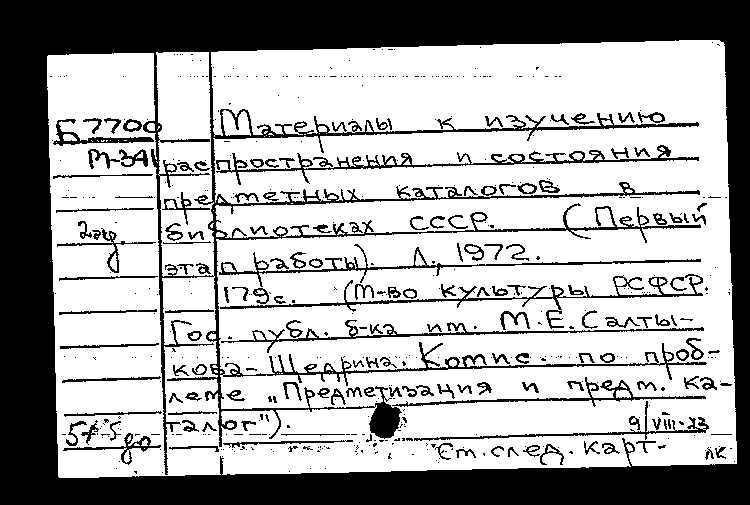 Б7700 Материалы к изучению
М-341 распространения и состояния
предметных каталогов в
2 экз. библиотеках СССР. (Первый
этап работы). Л., 1972.
179с. (М-во культуры РСФСР.
Гос. публ. б-ка им. М.Е.Салты-
кова-Щедрина. Комис. по проб-
леме "Предметизация и предм. ка-
талог").
9/VIII-73
См. след. карт-